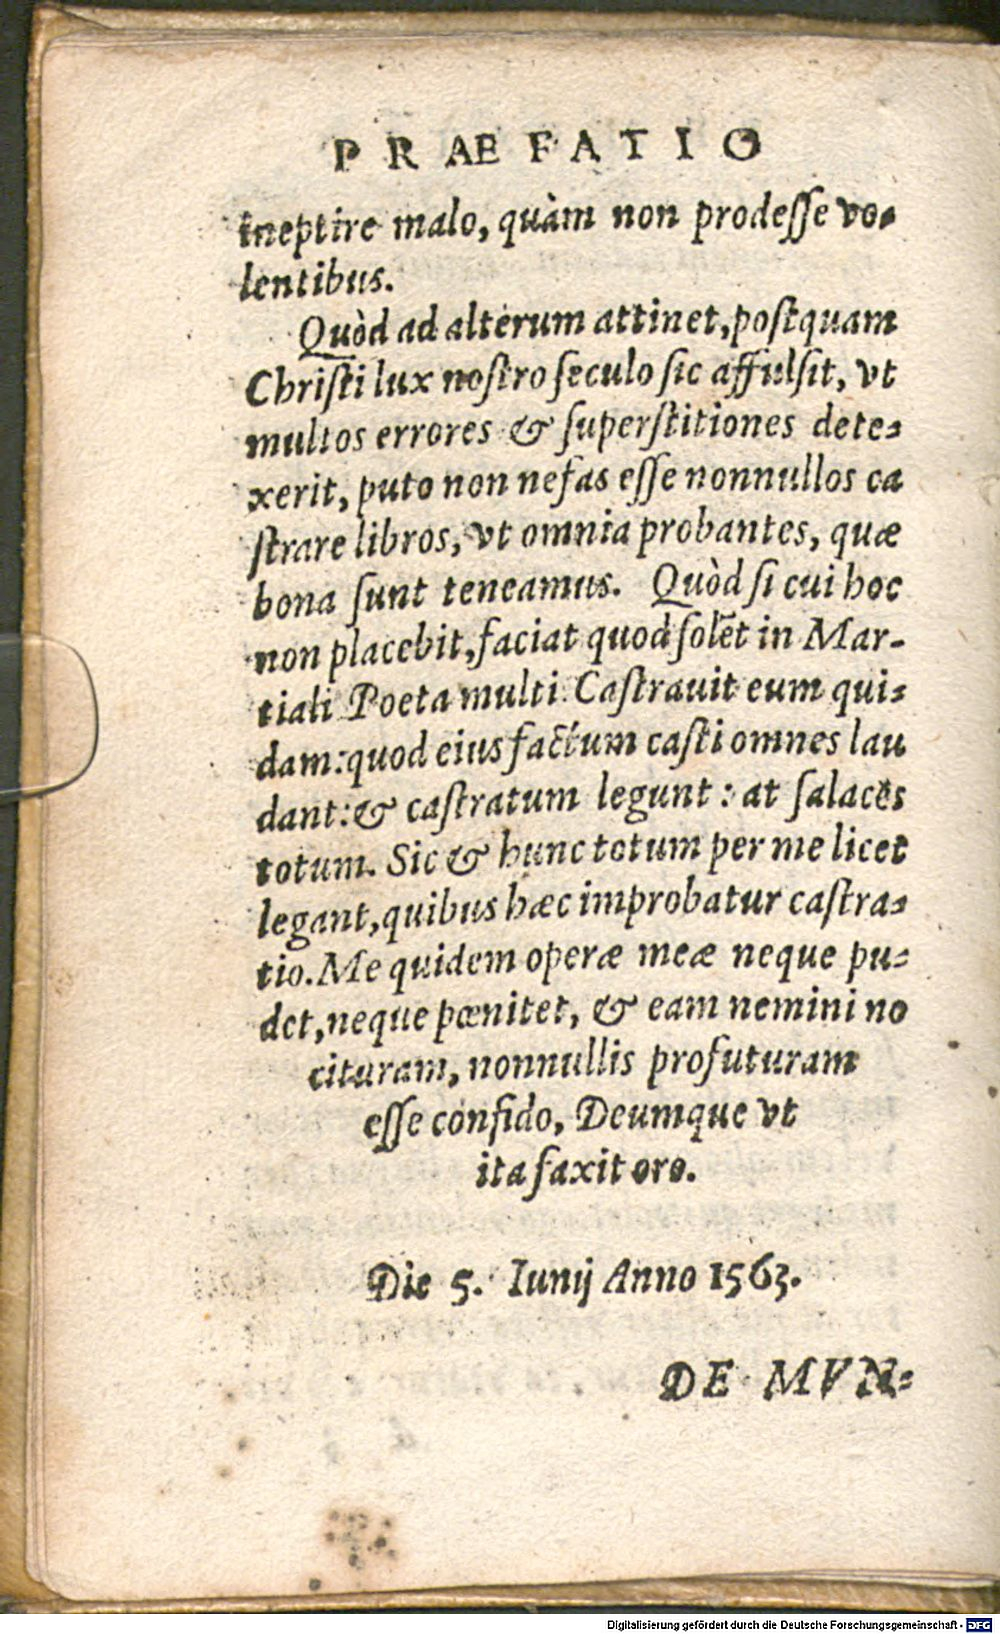 PRAEFATIO
ineptire malo, quàm non prodeſſe vo-
lentibus.
Quòd ad alterum attinet, poſtquam
Chriſti lux noſtro ſeculo ſic affulſit, vt
multos errores & ſuperſtitiones dete-
xerit, puto non nefas eſſe nonnullos ca
ſtrare libros, vt omnia probantes, quæ
bona ſunt teneamus. Quòd ſi cui hoc
non placebit, faciat quod ſolẽt in Mar-
tiali Poeta multi. Caſtrauit eum qui-
dam: quod eius factum caſti omnes lau
dant: & caſtratum legunt: at ſalaces
totum. Sic & hunc totum per me licet
legant, quibus hæc improbatur caſtra-
tio. Me quidem operæ meæ neque pu-
det, neque pœnitet, & eam nemini no
cituram, nonnullis profuturam
eſſe confido, Deumque vt
ita faxit oro.
Die 5. Iunij Anno 1563.
DE MVN-
Digitalisierung gefördert durch die Deutsche Forschungsgemeinschaft - DFG